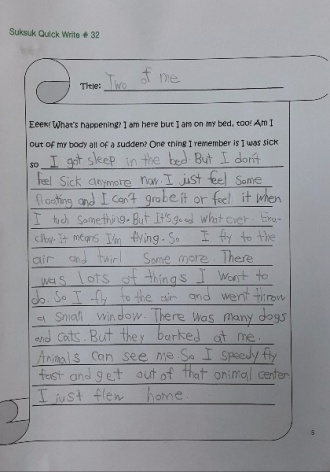 Suksuk Quick Write # 32
Title: Two of me
Eeek! What's happening? I am here but I am on my bed, too! Am I
out of my body all of a sudden? One thing I remember is I was sick
so I got sleep in the bed But I don't
feel sick anymore now. I just feel some
floating and I can't grabe it or feel it when
I tuch something. But It's good what ever. Exa-
ctly. it means I'm flying. So I fly to the
air and twirl Some more. There
was lots of things I want to
do. So I fly to the air and went throw
a small window. There was many dogs
and cats. But they barked at me.
Animals can see me So I speedy fly
fast and get out of that animal center
I just flew home.
5